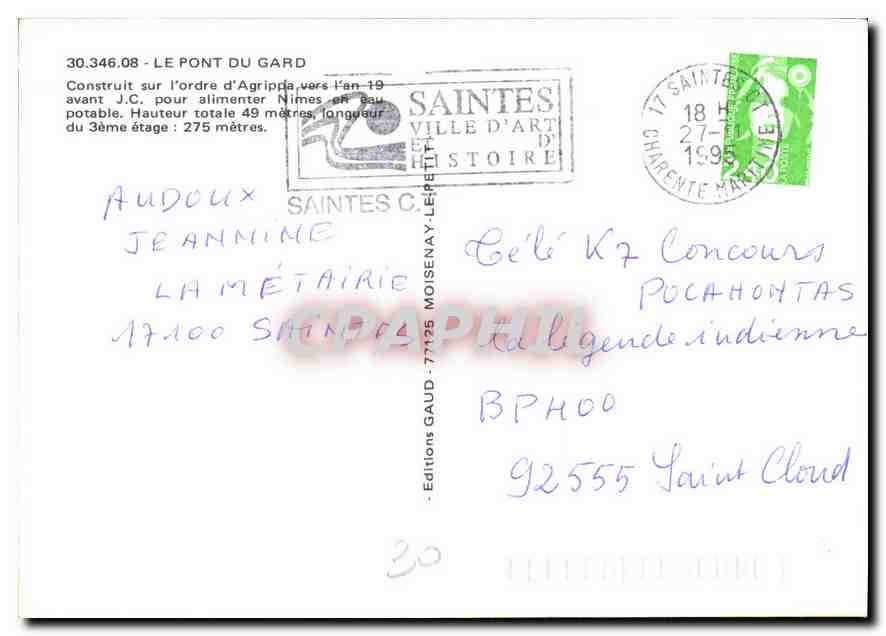 30.346.08 - LE PONT DU GARD
Construit sur l'ordre d'Agrippa vers l'an 19
avant J.C. pour alimenter Nimes en eau
potable. Hauteur totale 49 mètres, longueur
du 3ème étage : 275 mètres.
SAINTES
VILLE D'ART
ET D'
HISTOIRE
SAINTES C.T
17 SAINTES CT
18 H
27-11
1995
CHARENTE MARITIME
LA POSTE
AUDOUX
JEANNINE
LA MÉTAIRIE
17100 SAINTES
- Editions GAUD - 77125 MOISENAY-LE-PETIT -
Télé K7 Concours
POCAHONTAS
La légende indienne
BP400
92555 Saint Cloud
CPAPHIL
30